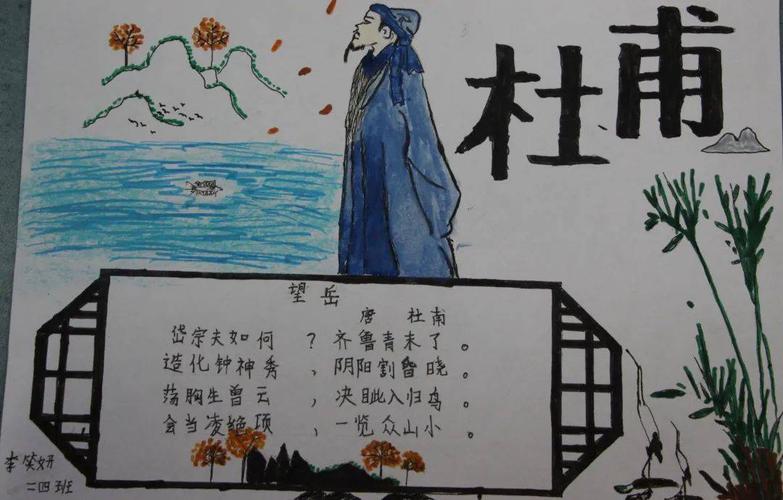 杜甫
望岳
唐 杜甫
岱宗夫如何？齐鲁青未了。
造化钟神秀，阴阳割昏晓。
荡胸生曾云，决眦入归鸟。
会当凌绝顶，一览众山小。
李笑妍
二四班